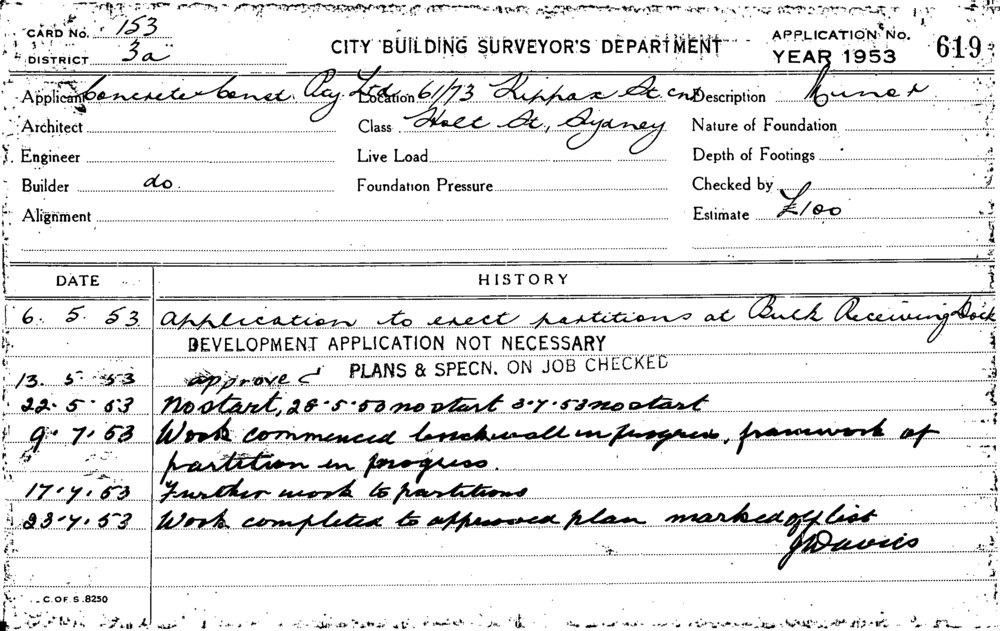 CARD No. 153
DISTRICT 3a
CITY BUILDING SURVEYOR'S DEPARTMENT
APPLICATION No. 619
YEAR 1953
Applicant Concrete Const. Pty. Ltd. Location 61/73 Kippax St. cnr Description Minor
Architect Class Holt St., Sydney Nature of Foundation
Engineer Live Load Depth of Footings
Builder do. Foundation Pressure Checked by
Alignment Estimate £100
DATE HISTORY
6. 5. 53 Application to erect partitions at Bulk Receiving Dock
DEVELOPMENT APPLICATION NOT NECESSARY
13. 5. 53 approved PLANS & SPECN. ON JOB CHECKED
22. 5. 53 No start, 28.5.53 no start 3.7.53 no start
9. 7. 53 Work commenced brickwall in progress, framework of
partition in progress.
17. 7. 53 Further work to partitions
23. 7. 53 Work completed to approved plan marked off list
Davies
C. OF S. 8250